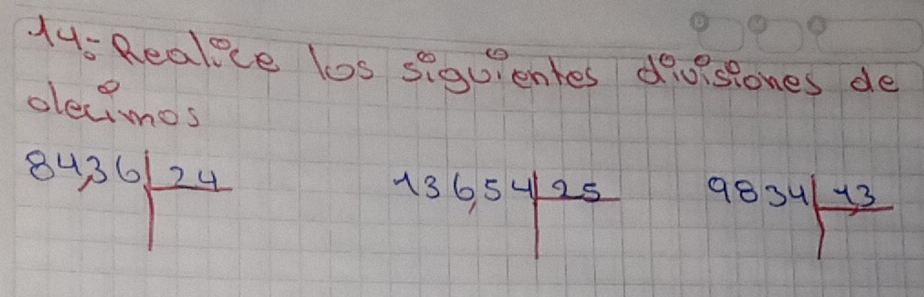 14: Realice los siguientes divisiones de
decimos
84,36 24 136,54 25 9834 1,3